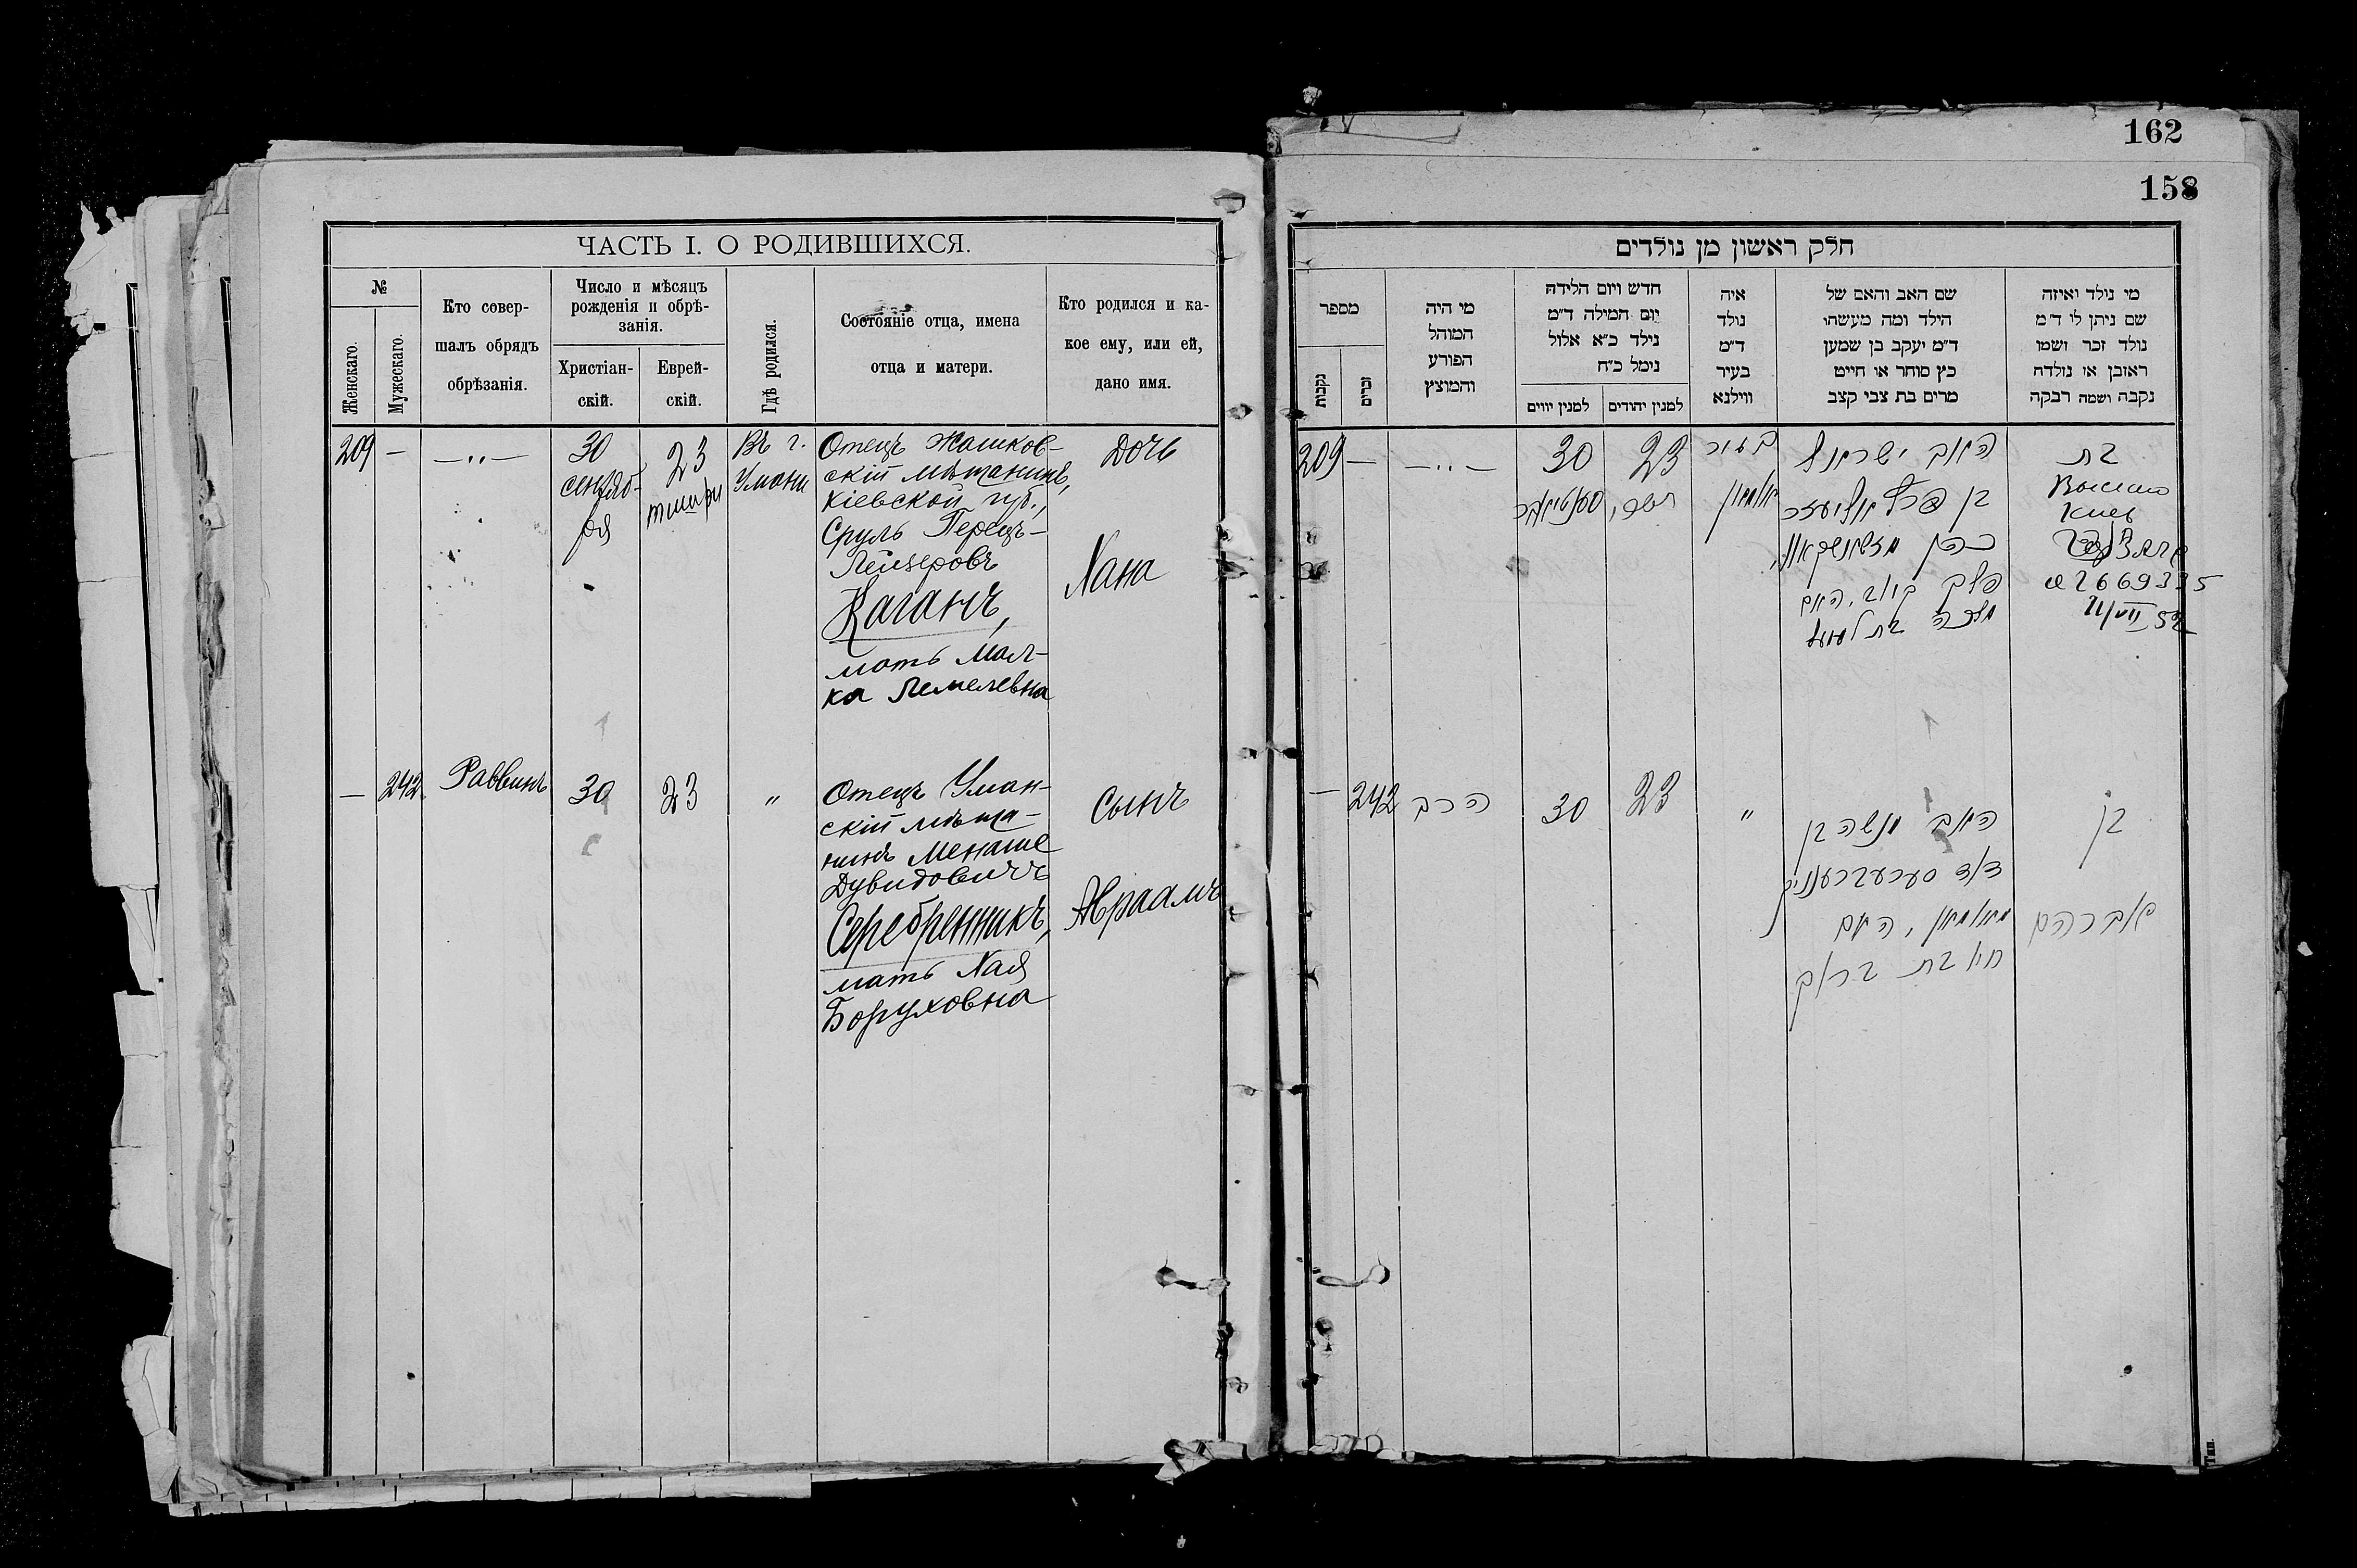 162
158
ЧАСТЬ I. О РОДИВШИХСЯ.
№
Женскаго.
Мужескаго.
Кто совер-
шалъ обрядъ
обрѣзанія.
Число и мѣсяцъ
рожденія и обрѣ-
занія.
Христіан-
скій.
Еврей-
скій.
Гдѣ родился.
Состояніе отца, имена
отца и матери.
Кто родился и ка-
кое ему, или ей,
дано имя.
209
—
—„—
30
сентяб-
ря
23
тишри
Въ г.
Умани
Отецъ Жашков-
скій мѣщанинъ,
Кіевской губ.,
Сруль Перецъ-
Лейзеровъ
Каганъ,
мать Мал-
ка Лемелевна
Дочь
Хана
—
242.
Раввинъ
30
23
„
Отецъ Уман-
скій мѣща-
нинъ Менаше
Дувидовичъ
Серебренникъ,
мать Хая
Боруховна
Сынъ
Авраамъ
חלק ראשון מן נולדים
מספר
נקבות
זכרים
מי היה
המוהל
הפורע
והמוצץ
חדש ויום הלידה
יום המילה ד״מ
נילד כ״א אלול
נימל כ״ח
למנין יווים
למנין יהודים
איה
נולד
ד״מ
בעיר
ווילנא
שם האב והאם של
הילד ומה מעשהו
ד״מ יעקב בן שמען
כץ סוחר או חייט
מרים בת צבי קצב
מי נולד ואיזה
שם ניתן לי ד״מ
נולד זכר ושמו
ראובן או נולדה
נקבה ושמה רבקה
209
—
—„—
30
23
תשרי
בעיר
אומאן
האב ישראל
בן פרץ אליעזר
כהן
פלך קיוב, האם
מלכה בת
בת
2669335
21/VII 52
—
242
הרב
30
23
„
האב מנשה בן
דוד סערעברעניק
מאומאן, האם
חיו בת ברוך
בן
אברהם
Тип.